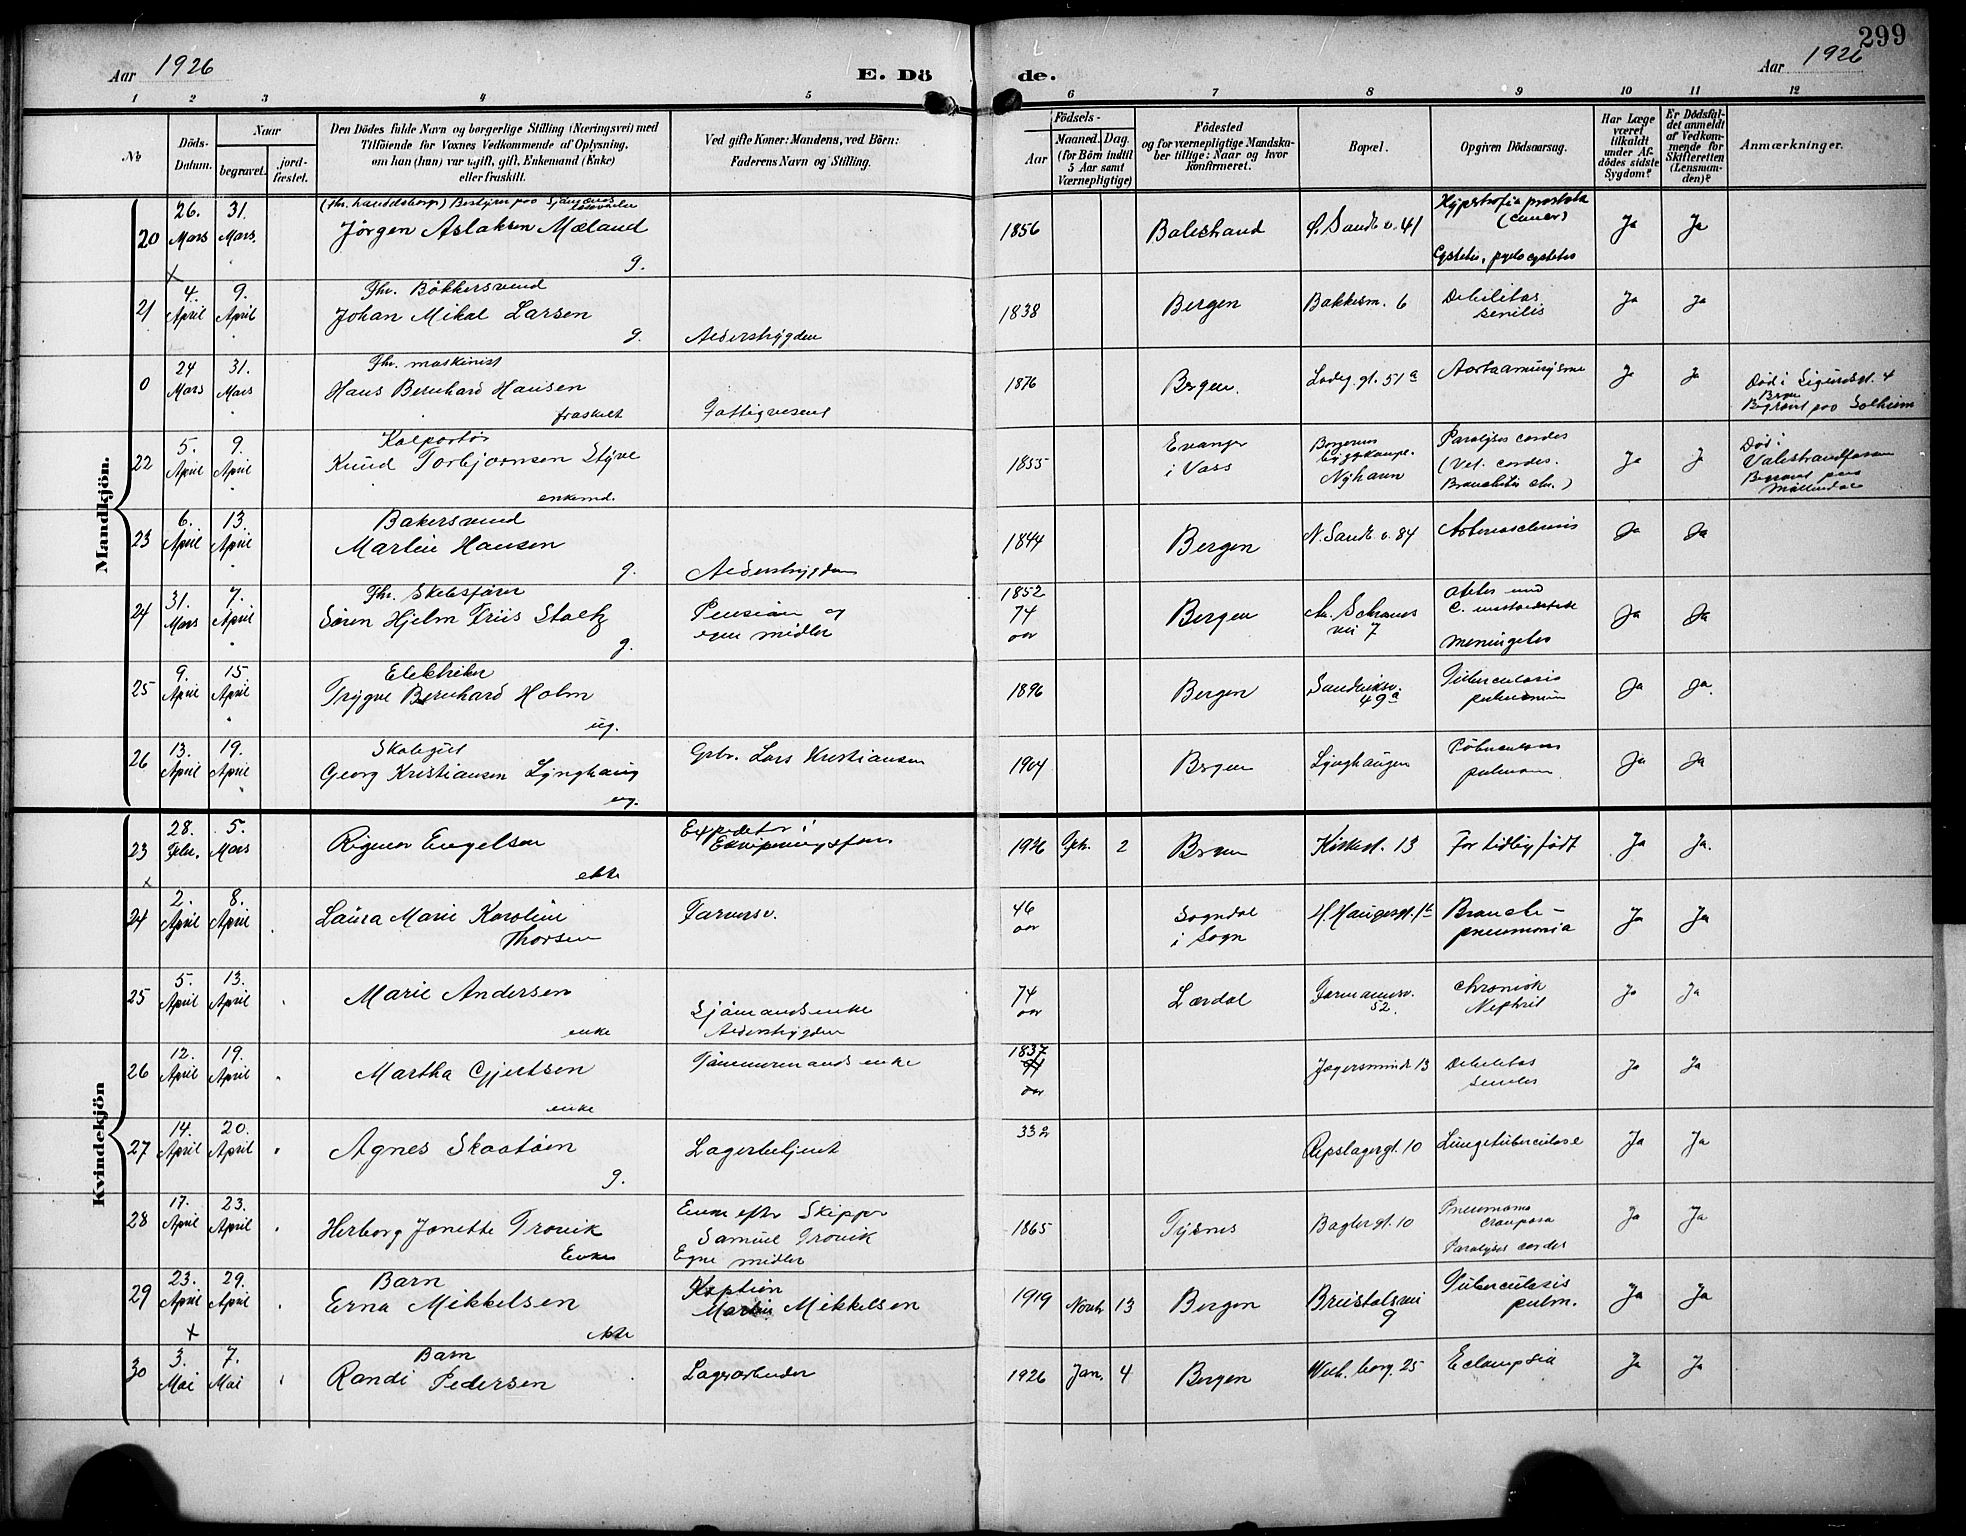 299
Aar 1926
E. Dö de.
Aar 1926
1 2 3 4 5 6 7 8 9 10 11 12
No
Döds-Datum.
Naar
begravet.
jord-fæstet.
Den Dödes fulde Navn og borgerlige Stilling (Næringsvei) med
Tilföiende for Voxnes Vedkommende af Oplysning,
om han (hun) var ugift, gift, Enkemand (Enke)
eller fraskilt.
Ved gifte Koner: Mandens, ved Börn:
Faderens Navn og Stilling.
Födsels-
Aar
Maaned. Dag.
(for Börn indtil
5 Aar samt
Værnepligtige)
Födested
og for værnepligtige Mandska-
ber tillige: Naar og hvor
konfirmeret.
Bopæl.
Opgiven Dödsaarsag.
Har Læge
været
tilkaldt
under Af-
dödes sidste
Sygdom?
Er Dödsfal-
det anmeldt
af Vedkom-
mende for
Skifteretten
(Lensman-
den)?
Anmærkninger.
Mandkjön.
20 26. Mars 31. Mars
Jörgen Aslaksen Mæland
g.
1856 Balestrand S. Sandv. v. 41
Hypertrofia prostata
(cancer)
Cystitis, pyelocystitis
Ja Ja
21 4. April 9. April
Fhv. Bökkersvend
Johan Mikal Larsen
g. Alderstrygden
1838 Bergen Bakkesm. 6
Debilitas
senilis
Ja Ja
0 24 Mars 31. Mars
Fhv. maskinist
Hans Bernhard Hansen
fraskilt Fattigvesenet
1876 Bergen. Ladeg. gt. 51a
Ja Ja
Död i Sigurdsgt. 4
Begravet paa Solheim
22 5. April 9. April
Kolportör
Knud Torbjornsen Styve
enkemd.
1855
Evanger
i Voss
Nyhavn
Paralyses cordis
(Vit. cordis.
Bronchitis chr.)
Ja J
Död i
Valestrandfossen
Begravet paa
Möllendal
23 6. April 13. April
Bakersvend
Martin Hansen
g. Alderstrygden
1844 Bergen N. Sandv. v. 84 Ja Ja
24 31. Mars 7. April
Sören Hjelm Friis Stoltz
g.
Pension og
egne midler
1852
74
aar
Bergen
vei 7
Otitis med
Meningitis
Ja Ja
25 9. April 15. April
Elektriker
Trygve Bernhard Holm
ug.
1896 Bergen
Sandviksv.
49a
Tuberculosis
pulmonum
Ja Ja.
26 13. April 19. April
Skolegut
Georg Kristiansen Lynghaug
ug.
Gbr. Lars Kristiansen
1904 Bergen Lynghaugen
pulmon.
Ja Ja
Kvindekjön
23 28. Febr. 5. Mars
Rigmor Engelsen
ekte
Expeditör i
Ekviperingsforr.
1926 Feb. 2 Bergen Kirkegt. 13 For tidlig födt Ja Ja.
24 2. April 8. April
Laura Marie Karoline
Thorsen
Farversv.
46
aar
Sogndal
i Sogn
H. Haugesgt. 1b
Broncho-
pneumonia
Ja Ja
25 5. April 13. April
Marie Andersen
enke
Sjömandsenke
Alderstrygden
74
aar
Lærdal
Formannsv.
52.
chronisk
Nephrit
Ja Ja
26 12. April 19. April
Martha Gjertsen
enke
Tömmermands enke
1837
aar
Jægersminde 13
Debilitas
Senilis
Ja Ja
27 14. April 20. April
Agnes Skaatöen
g.
Lagerbetjent
332
Repslagergt. 10 Lungetuberculose Ja Ja
28 17. April 23. April
Herborg Jonette Trovik
Enke
Enke efter Skipper
Samuel Trovik
Egne midler
1865 Tysnes Baglergt. 10
Pneumonia
crouposa
Paralyses cordis
Ja Ja
29 23. April 29. April
Barn
Erna Mikkelsen
ekte
Kaptein
Martin Mikkelsen
1919 Novbr 13 Bergen
Breistölsvei
9
Tuberculosis
pulm.
Ja Ja
30 3. Mai 7. Mai
Barn
Randi Pedersen
Lagerarbeider
1926 Jan. 4 Bergen Wilh. borg. 25 Eclampsia Ja Ja